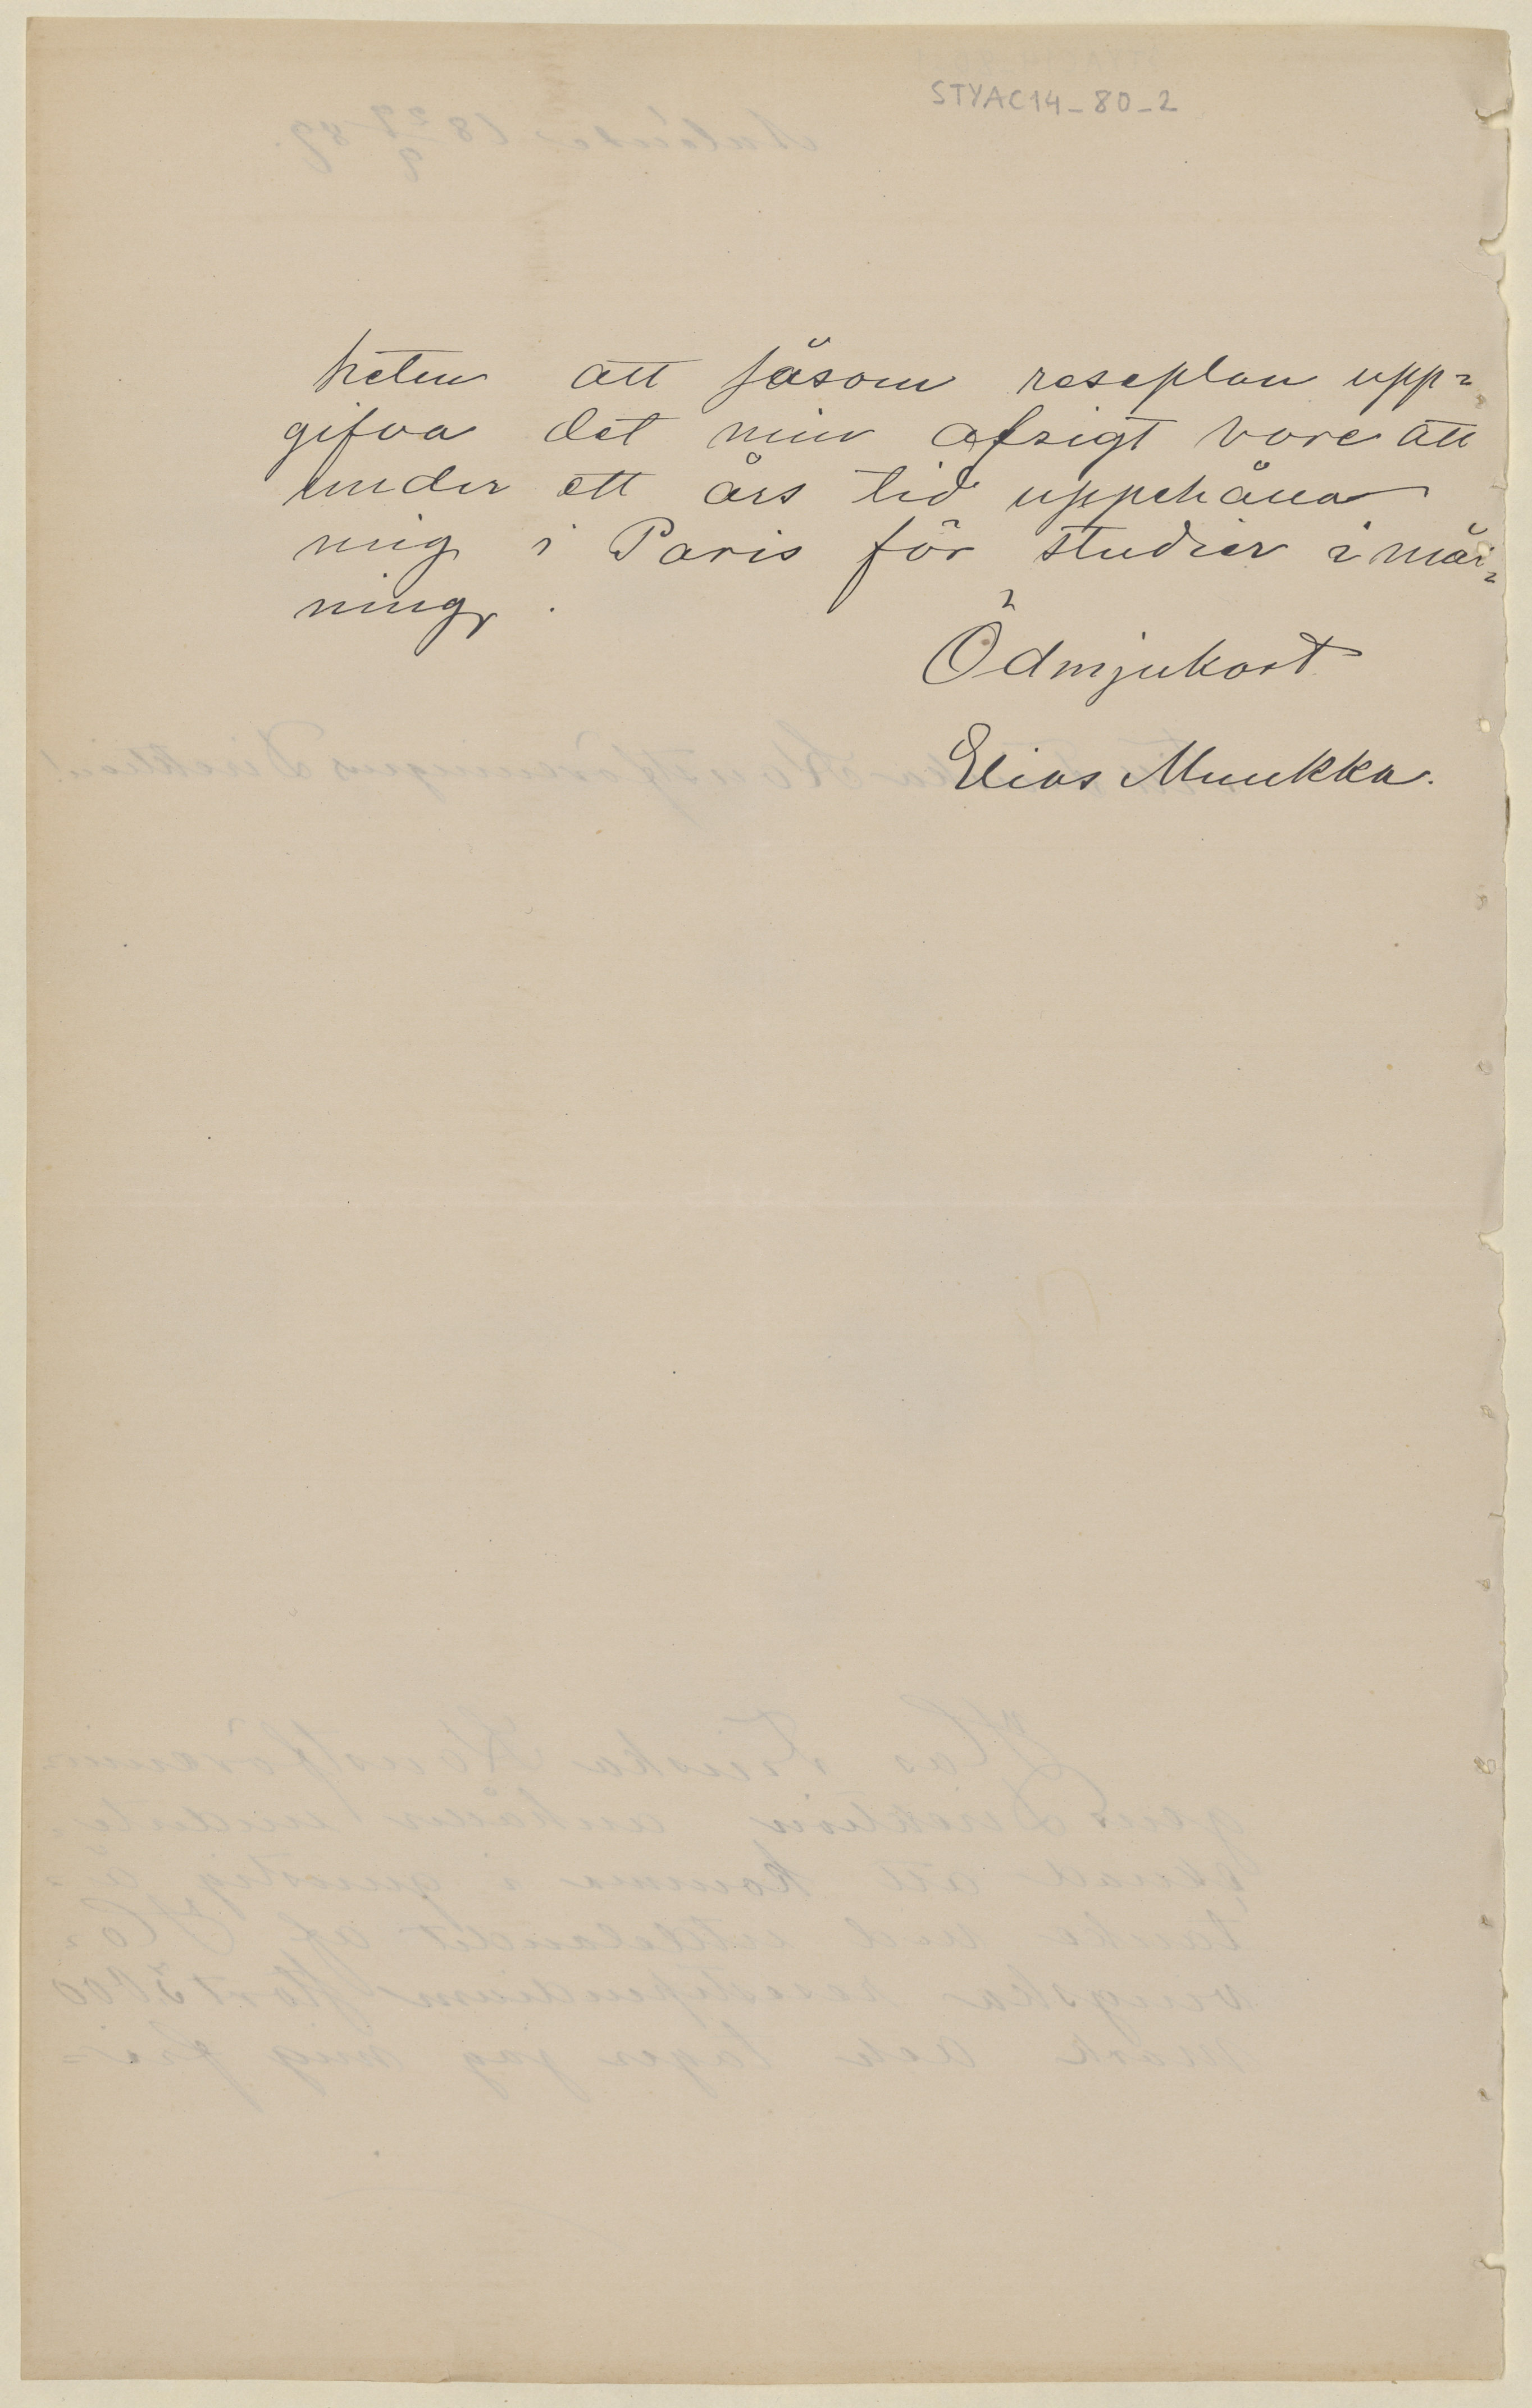 STYAC14_80_2
heten att såsom reseplan upp=
gifva det min afsigt vore att
under ett års tid uppehålla
mig i Paris för studier i mål=
ning.
Ödmjukast
Elias Muukka.